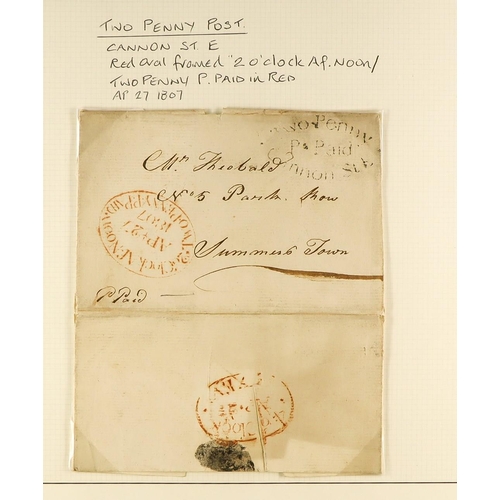 TWO PENNY POST.
CANNON ST E
Red Oval framed "2 o'clock Af. Noon/
TWO PENNY P. PAID in RED
AP 27 1807
Two Penny
Pt Paid
Cannon St E
Mr. Theobald
No 5 Parsh. Row
Summers Town
2 o'Clock Af. NOON
AP 27
1807
TWO PENNY P. PAID
P Paid